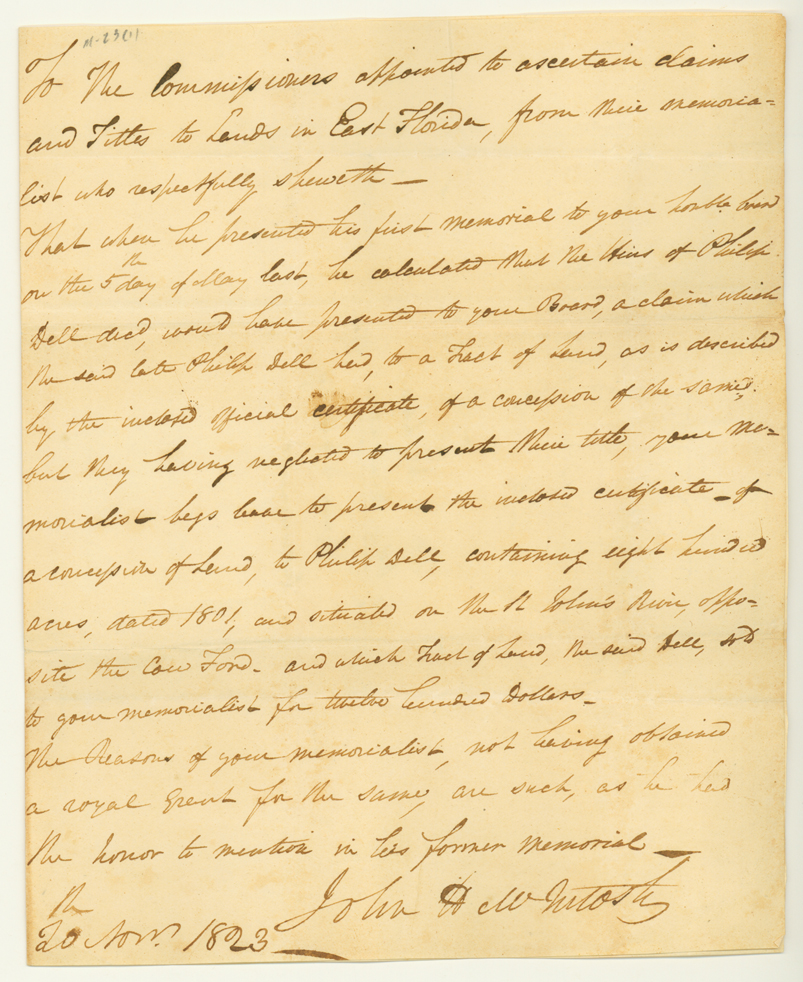 M-23(1)
To The Commissioners appointed to ascertain claims
and Titles to Lands in East Florida, from their memoria=
list who respectfully sheweth —
That when he presented his first memorial to your honble. board
on the 5th day of May last, he calculated that the Heirs of Philip
Dell decd, would have presented to your Board, a claim which
the said late Philip Dell had, to a Tract of Land, as is described
by the inclosed official certificate, of a concession of the same,
but they having neglected to present their title, your me=
morialist begs leave to present the inclosed certificate — of
a concession of Land, to Philip Dell, containing eight hundred
acres, dated 1801, and situated on the St John's River, oppo=
site the Cow Ford — and which Tract of Land, the said Dell, sold
to your memorialist for twelve hundred Dollars —
The Reasons of your memorialist, not having obtained
a royal Grant for the same, are such, as he had
the honor to mention in his former memorial —
John H McIntosh
20th Novr. 1823 —